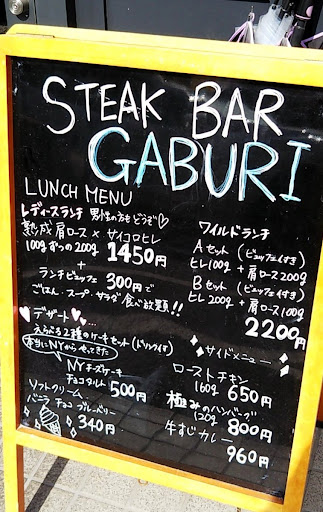 STEAK BAR
GABURI
LUNCH MENU
レディースランチ 男性の方も どうぞ♡
熟成 肩ロース × サイコロヒレ
100g ずつの 200g 1450円
+
ランチビュッフェ 300円で
ごはん・スープ・サラダ 食べ放題!!
ワイルドランチ
Aセット (ビュッフェ付き)
ヒレ100g + 肩ロース200g
Bセット (ビュッフェ付き)
ヒレ200g + 肩ロース100g
2200円
デザート
えらべる2種のケーキセット (ドリンク付)
本当にNYからやってきた
NYチーズケーキ
チョコタルト 500円
ソフトクリーム
バニラ チョコ ブルーベリー
340円
サイドメニュー
ローストチキン
160g 650円
極みのハンバーグ
120g 800円
牛すじカレー
960円